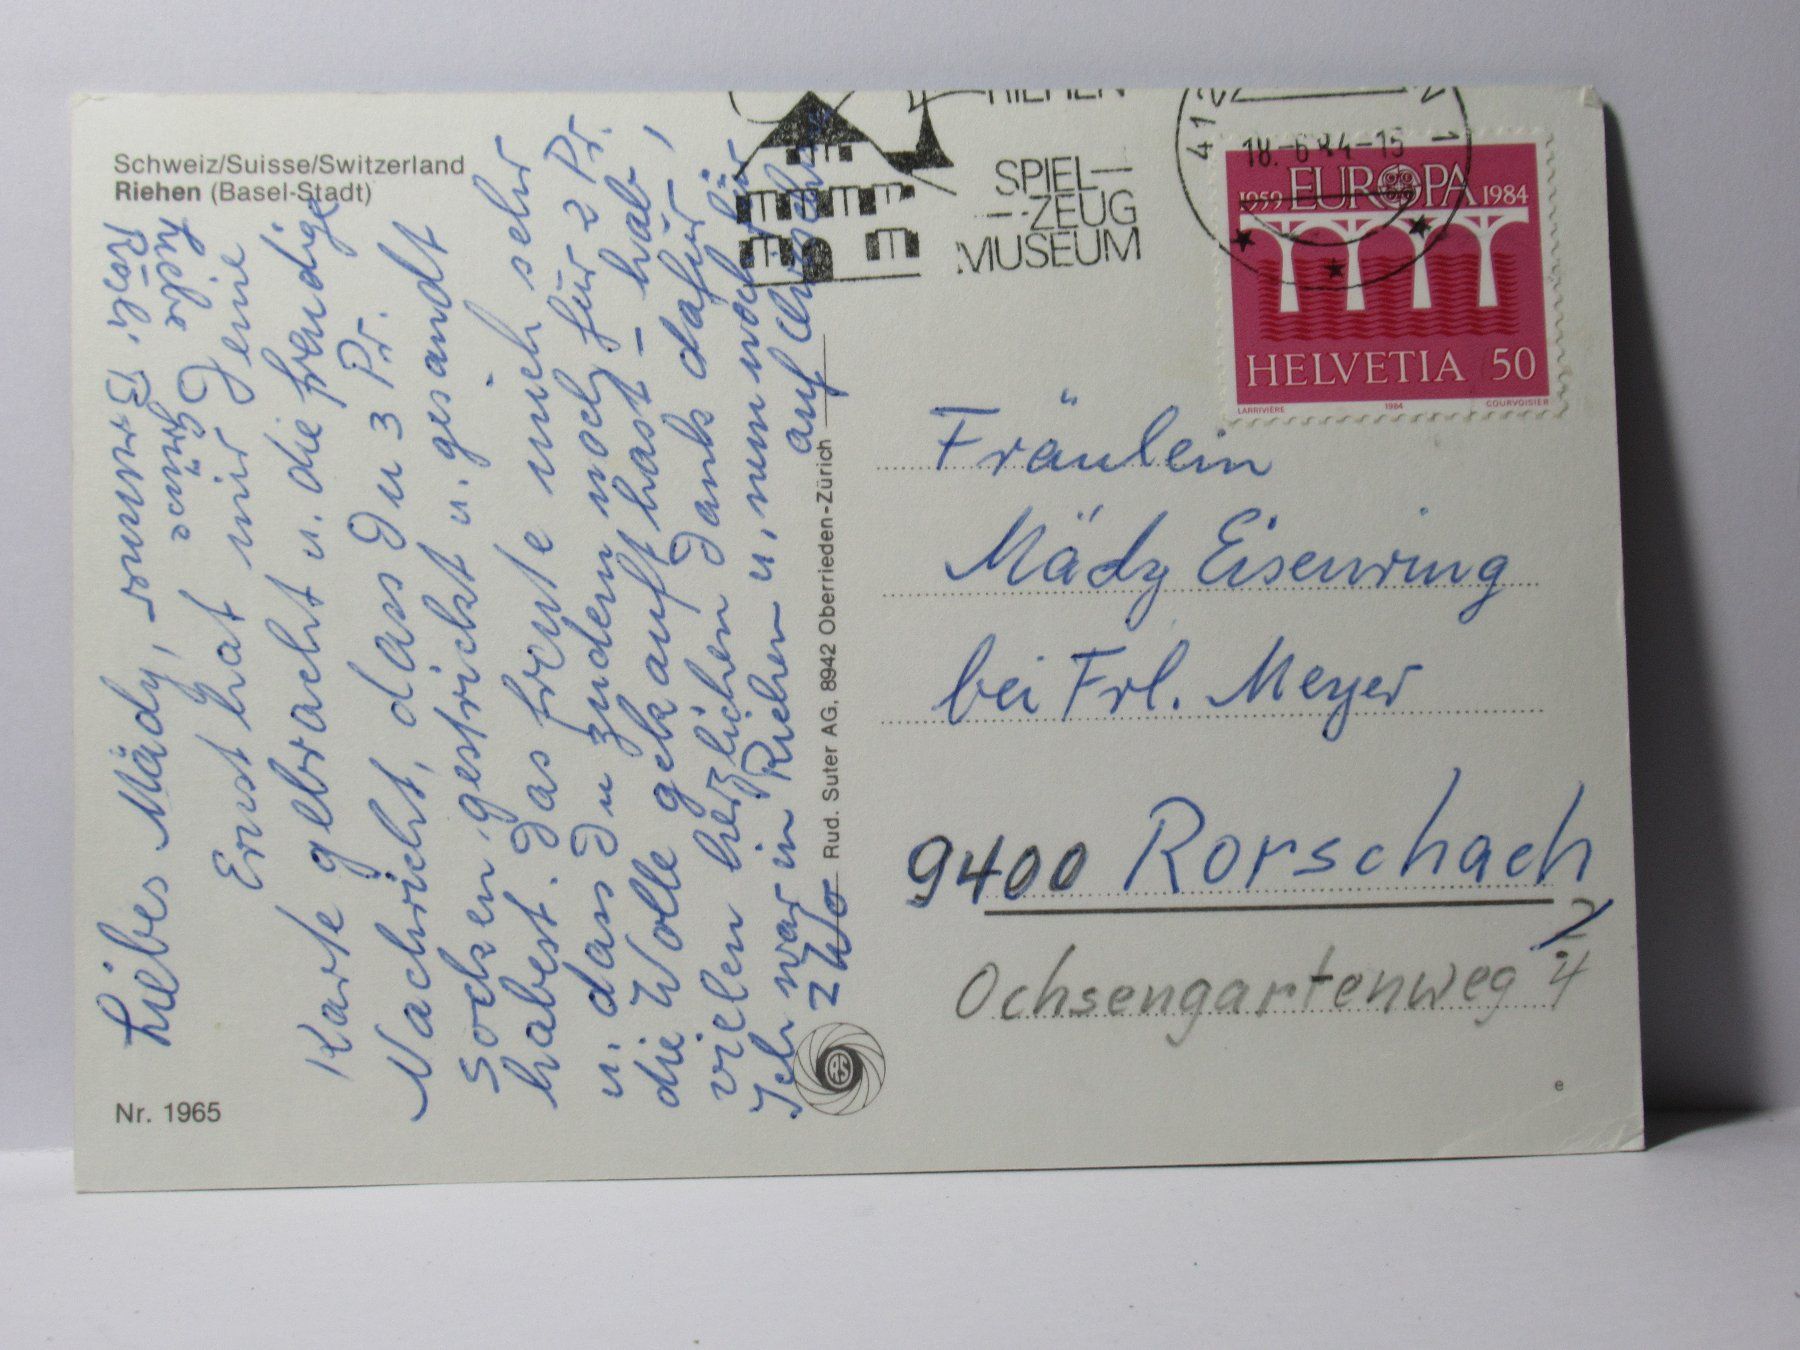 Schweiz/Suisse/Switzerland
Riehen (Basel-Stadt)
Liebes Mädy,
Ernst hat mir Deine
Karte gebracht u. die freudige
Nachricht, dass Du 3 Pr.
Socken gestrickt u. gesandt
habest. Das freute mich sehr
u. dass Du zudem noch für 2 Pr.
die Wolle gekauft hast – hab'
vielen herzlichen Dank dafür,
Ich war in Riehen u. nun noch für
2 auf
Liebe Grüsse
Rösli
Nr. 1965
Rud. Suter AG, 8942 Oberrieden-Zürich
RS
RIEHEN
SPIEL-
ZEUG
MUSEUM
412
18.-6 84-15
1959 EUROPA 1984
HELVETIA 50
LARRIVIÈRE 1984 COURVOISIER
Fräulein
Mädy Eisenring
bei Frl. Meyer
9400 Rorschach
Ochsengartenweg 4
e